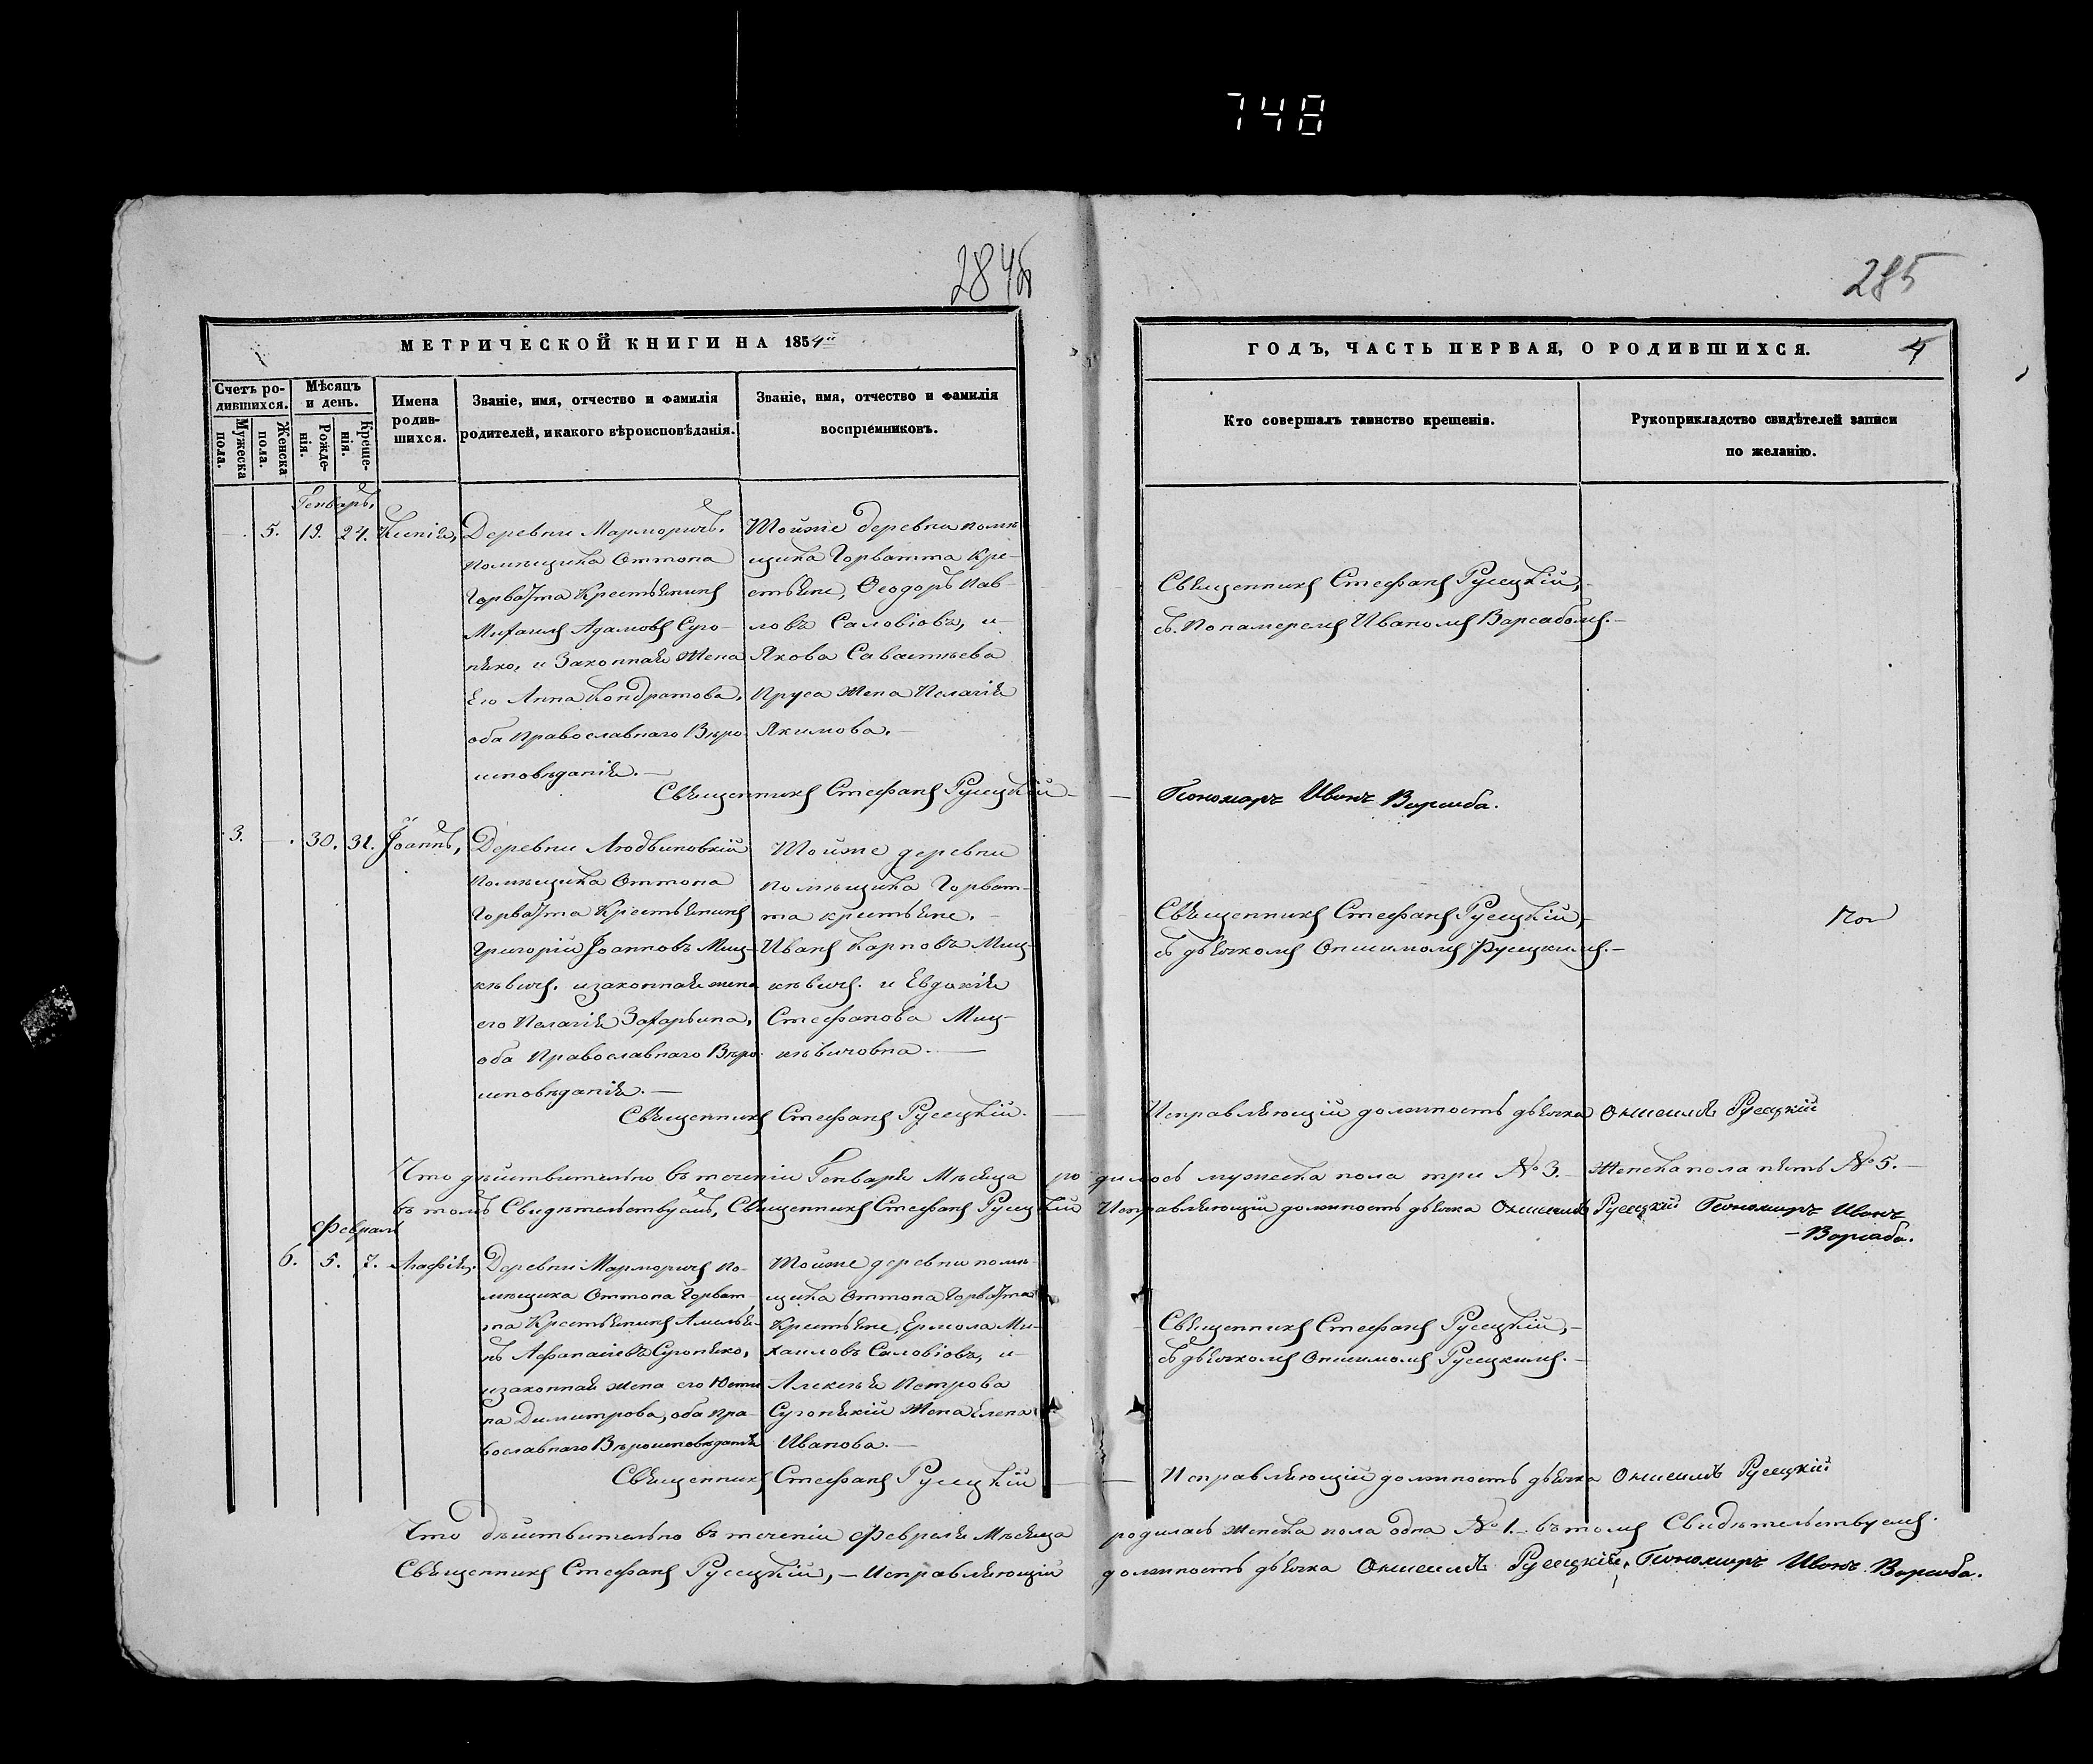 748
284об
285
МЕТРИЧЕСКОЙ КНИГИ НА 1854й
ГОДЪ, ЧАСТЬ ПЕРВАЯ, О РОДИВШИХСЯ.
4
Счетъ ро-
дившихся.
Мужеска
пола.
Женска
пола.
Мѣсяцъ
и день.
Рожде-
нія.
Креще-
нія.
Имена
родив-
шихся.
Званіе, имя, отчество и фамилія
родителей, и какого вѣроисповѣданія.
Званіе, имя, отчество и фамилія
воспріемниковъ.
Кто совершалъ таинство крещенія.
Рукоприкладство свидѣтелей записи
по желанію.
Генварь.
5. 19. 24. Ксенія,
Деревни Марморичъ.
помѣщика Оттона
Горватта Крестьянинъ
Михаилъ Адамовъ Суго-
няко, и Законная Жена
Его Анна Кондратова,
оба Православнаго Вѣро
исповѣданія.—
Тойже деревни помѣ
щика Горватта Кре-
стьяне, Ѳеодоръ Пав-
ловъ Саловіовъ, и
Якова Савастьева
Пруса Жена Пелагія
Якимова.—
Священникъ Стефанъ Русецкій,
съ Понамеремъ Иваномъ Варсабомъ.—
Священникъ Стефанъ Русецкій —
Пономарь Иванъ Варсаба.
3. — 30. 31. Іоаннъ,
Деревни Людвиновкій
Помѣщика Оттона
Горватта Крестьянинъ
Григорій Іоанновъ Миц-
кѣвичъ. и законная жена
его Пелагія Захарьина,
оба Православнаго Вѣро
исповѣданія.—
Тойже деревни
Помѣщика Горват-
та крестьяне.—
Иванъ Карповъ Миц-
кѣвичъ. и Евдокія
Стефанова Миц-
кѣвичовна.—
Священникъ Стефанъ Русецкій,
съ дьячкомъ Онисимомъ Русецкимъ.—
Священникъ Стефанъ Русецкій. —
Исправляющій должность дьячка Онисимъ Русецкій
Что дѣйствительно въ теченіи Генваря Мѣсяца родилось мужеска пола три №3.— Женска пола пять №5.—
въ томъ Свидѣтельствуемъ, Священникъ Стефанъ Русецкій Исправляющій должность дьячка Онисимъ Русецкій Пономарь Иванъ
—Варсаба.
Февраль
6. 5. 7. Агафія.
Деревни Марморичъ по-
мѣщика Оттона Горват-
та Крестьянинъ Амелья-
нъ Афанасіевъ Сугоняко,
и законная жена его Юсти
на Димитрова, оба Пра-
вославнаго Вѣроисповѣданія
Тойже деревни помѣ-
щика Оттона Горватта
Крестьяне, Ермола Ми-
хаиловъ Саловіовъ, и
Алексѣя Петрова
Сугонякій Жена Елена
Иванова.—
Священникъ Стефанъ Русецкій,—
съ дьячкомъ Онисимомъ Русецкимъ.—
Священникъ Стефанъ Русецкій —
Исправляющій должность дьячка Онисимъ Русецкій
Что дѣйствительно въ теченіи Февраля Мѣсяца родилась женска пола одна №1.— въ томъ Свидѣтельствуемъ.
Священникъ Стефанъ Русецкій,— Исправляющій должность дьячка Онисимъ Русецкій, Пономарь Иванъ Варсаба.